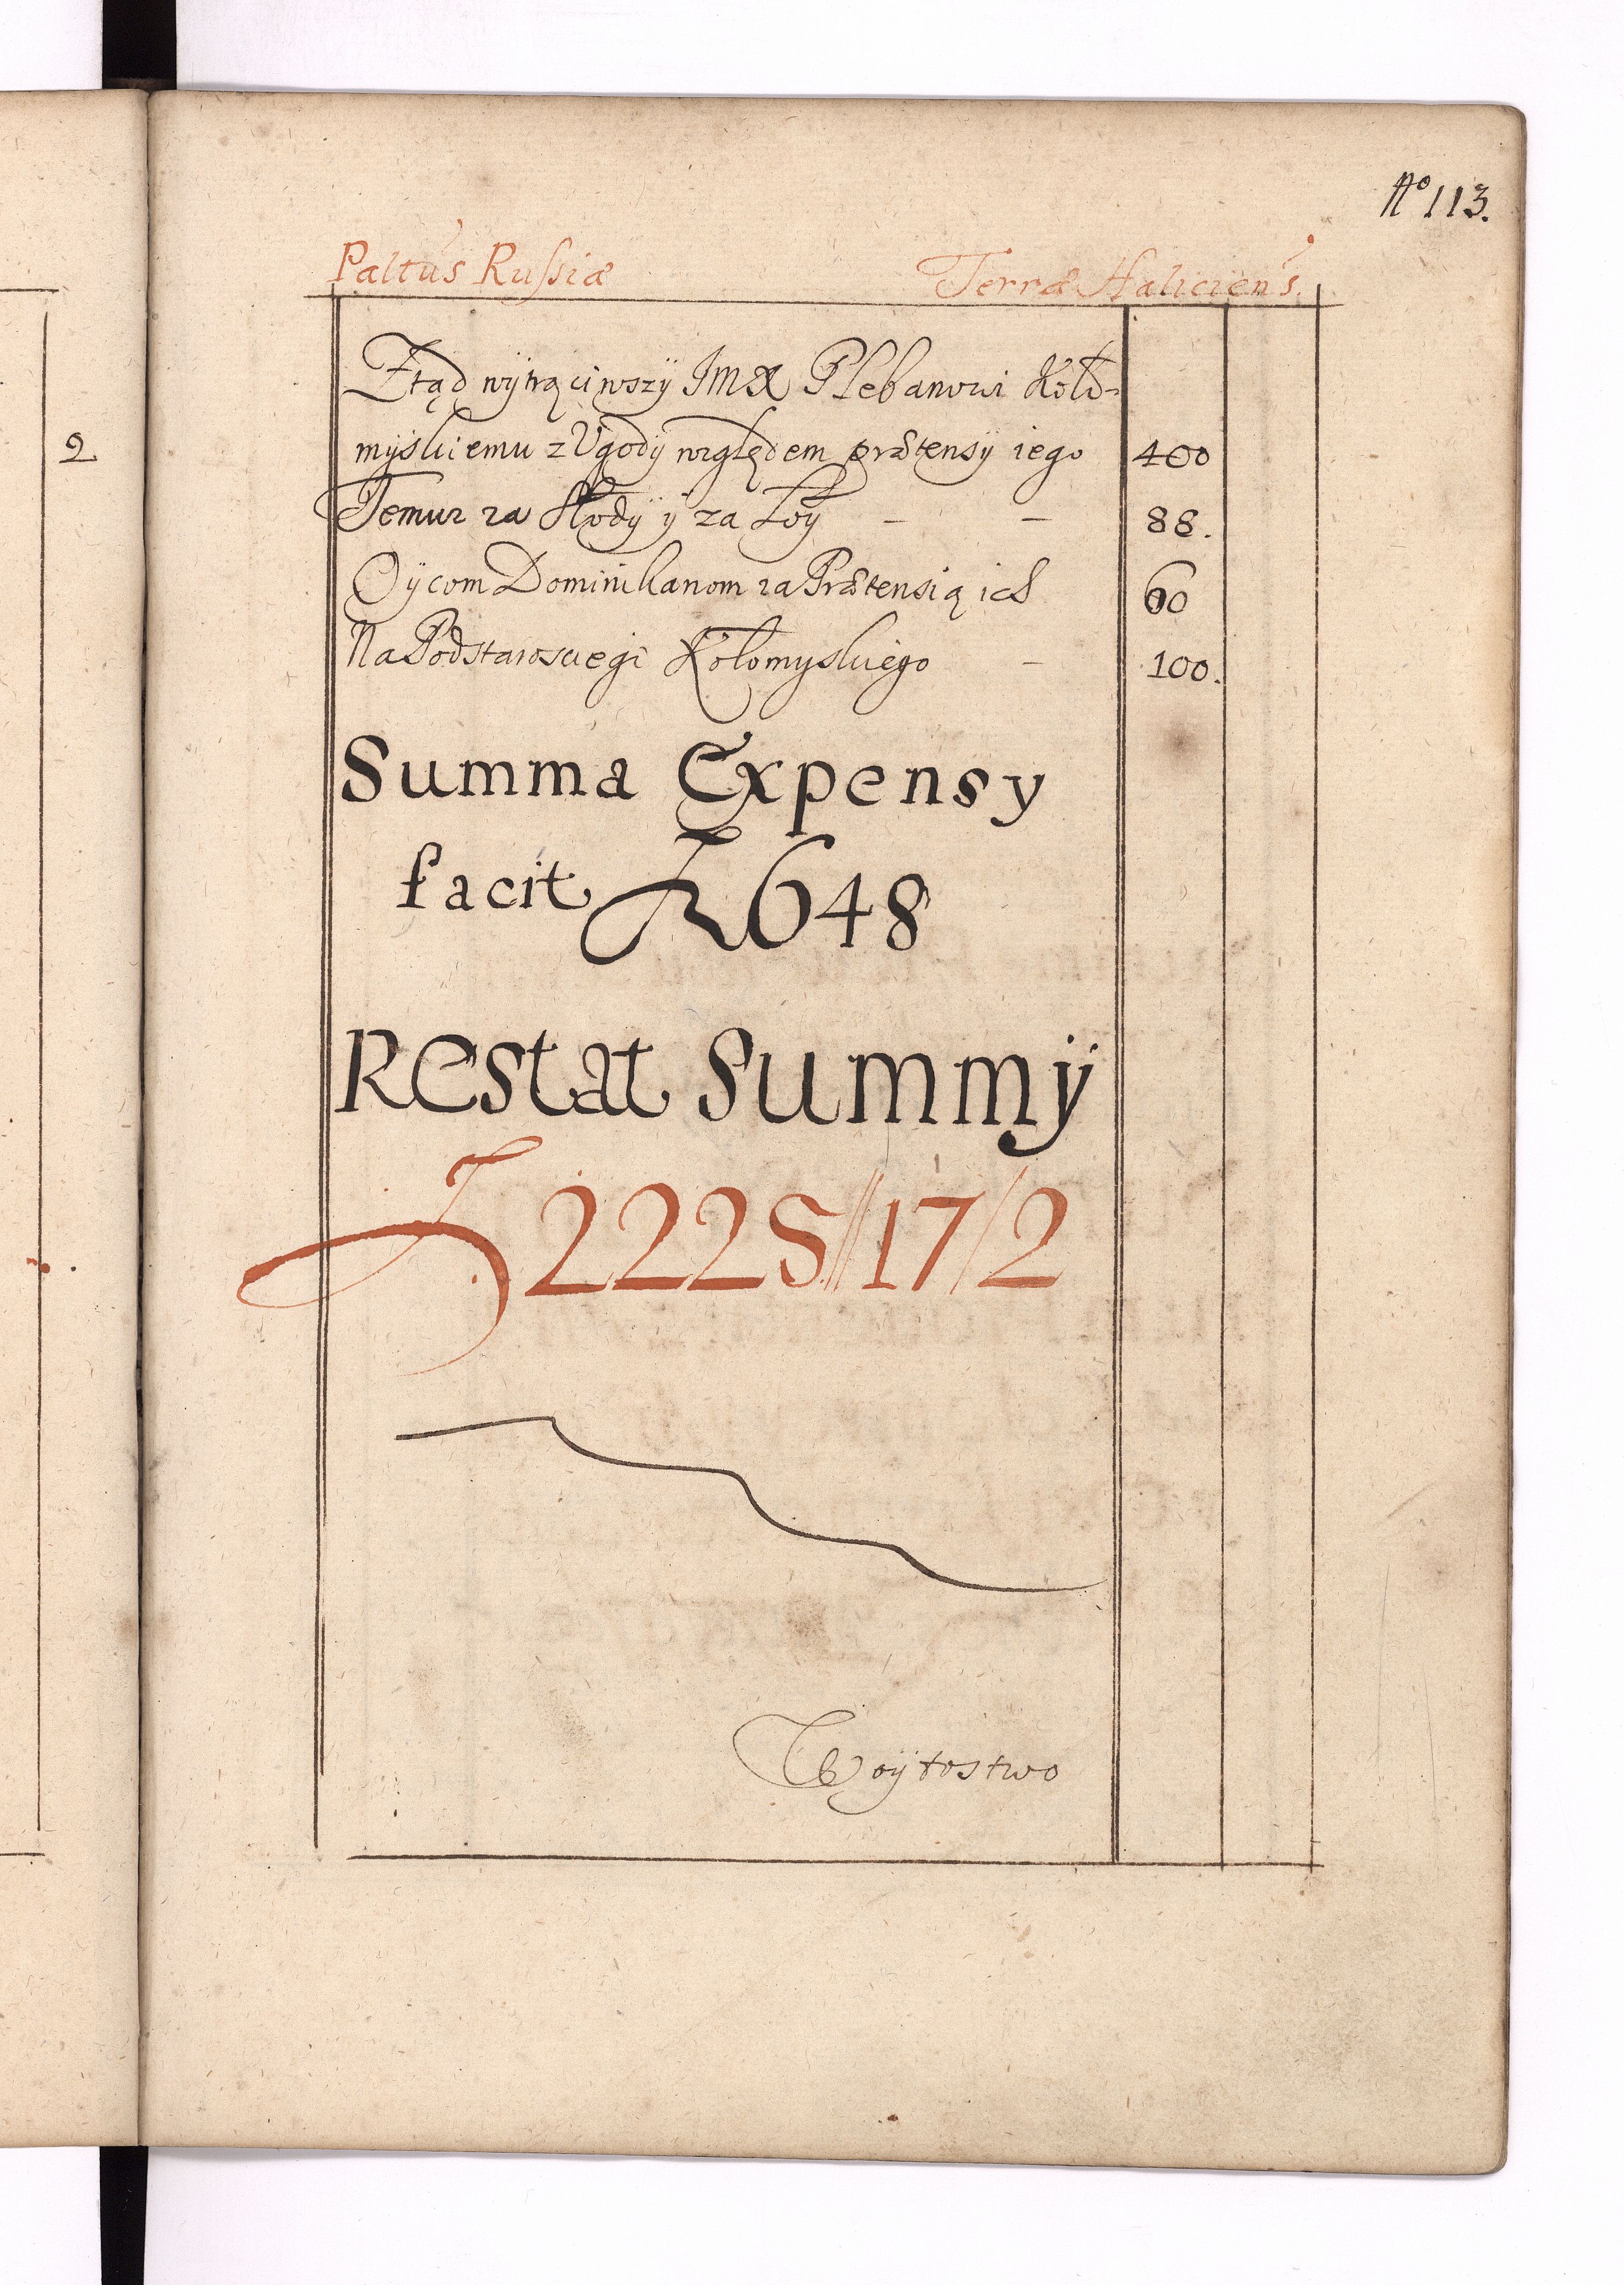 No 113.
Paltus Russiæ Terræ Haliciens.
Ztąd wÿtrąciwszÿ JMX Plebanowi Koło-
mÿskiemu z Ugodÿ względem prætensÿ iego 400
Temuz za Słodÿ ÿ za Łoÿ – – 88.
Oÿcom Dominikanom za Prætensią ich 60
Na Podstarosciegi Kołomyskiego – 100.
Summa Expensy
facit 648
Restat Summÿ
2225//17/2
Woÿtostwo
2